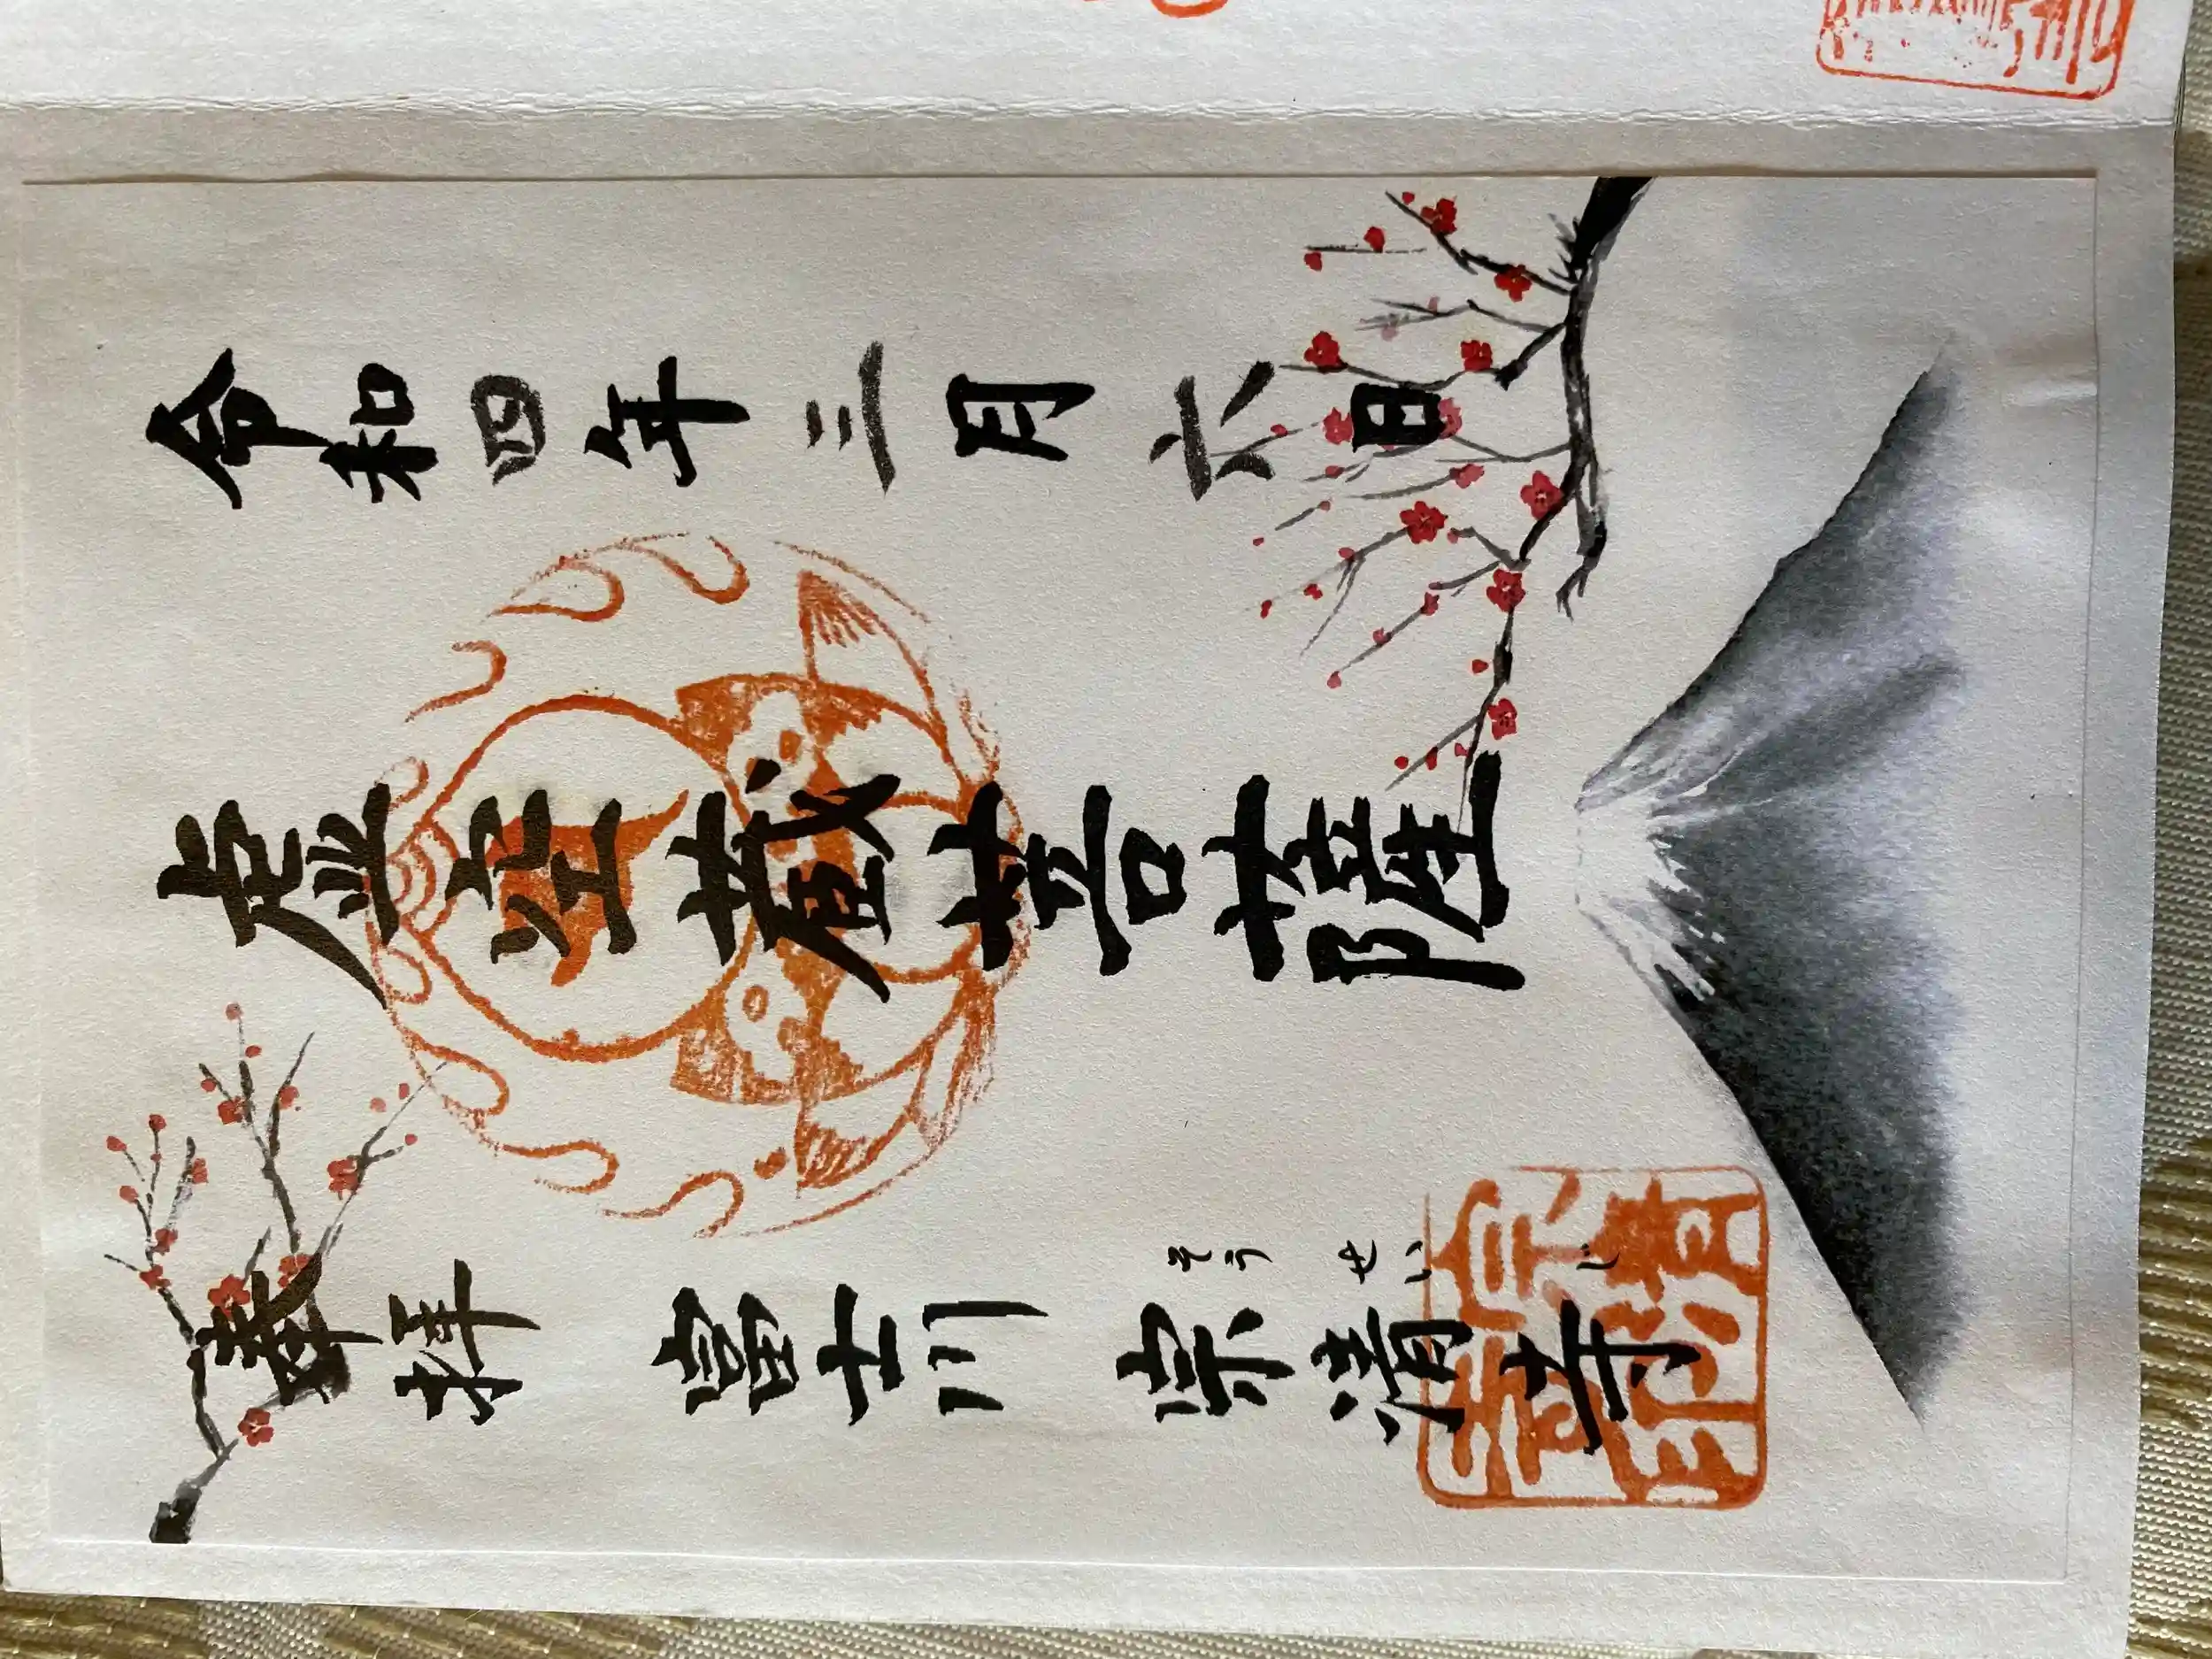 令和四年三月六日
虚空蔵菩薩
奉拝 富士川 宗清寺
そうせいじ
宗清寺印